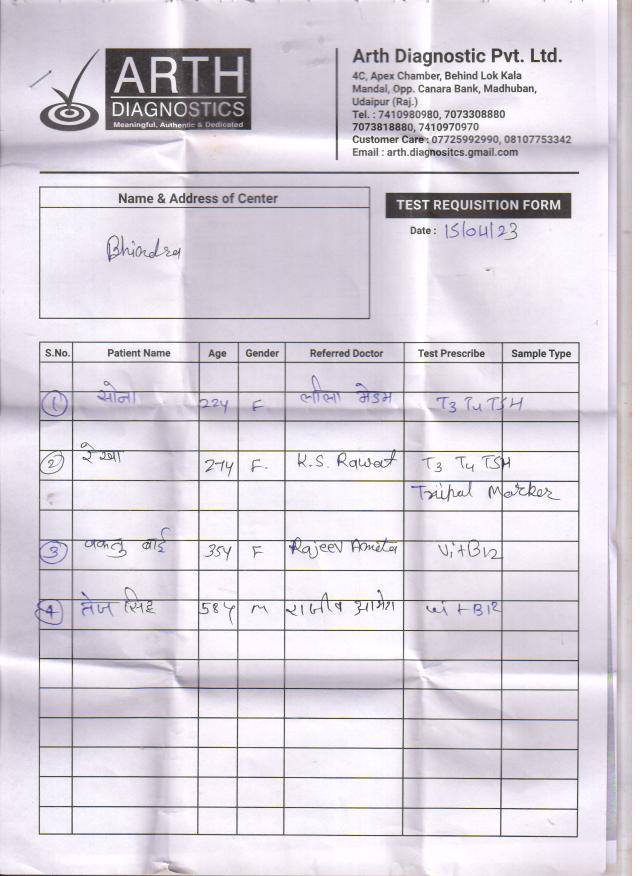 ARTH
DIAGNOSTICS
Meaningful, Authentic & Dedicated
Arth Diagnostic Pvt. Ltd.
4C, Apex Chamber, Behind Lok Kala
Mandal, Opp. Canara Bank, Madhuban,
Udaipur (Raj.)
Tel. : 7410980980, 7073308880
7073818880, 7410970970
Customer Care : 07725992990, 08107753342
Email : arth.diagnositcs.gmail.com
Name & Address of Center
TEST REQUISITION FORM
Date : 15/04/23
S.No. Patient Name Age Gender Referred Doctor Test Prescribe Sample Type
1 सोना 22y F लीला मेडम T3 T4 TSH
2 रेखा 27y F. K.S. Rawat T3 T4 TSH
Tripal Marker
3 बाई 35y F Rajeev Vit B12
4 तेज सिह 58y M राजीव Vit B12